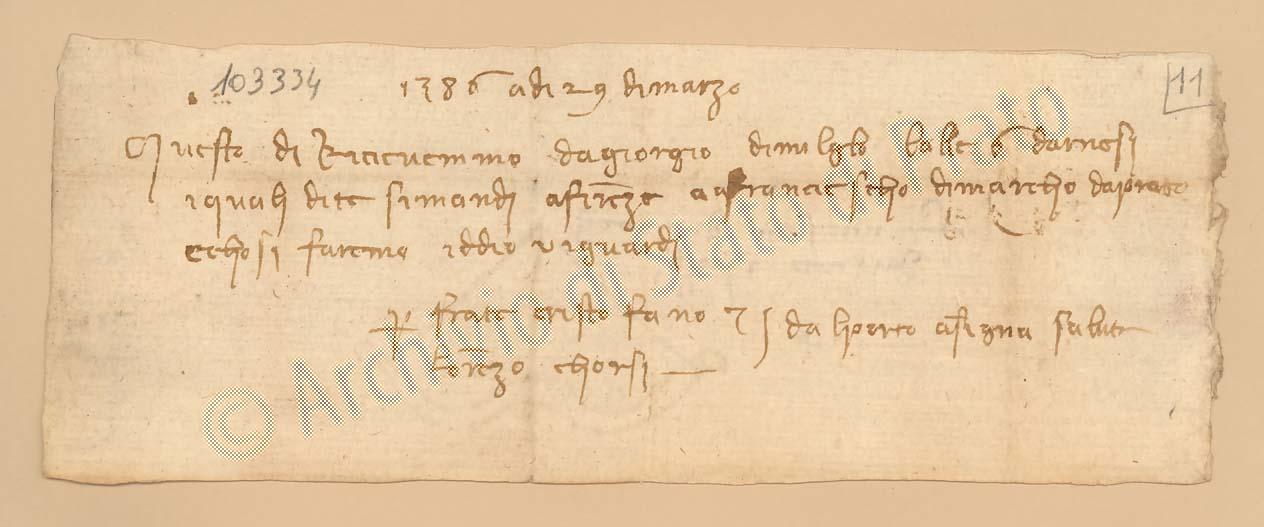 103334 1386 adi 29 di marzo 11
Questo di Riccevemmo da giorgio di balle 6 darnesi
i quali dite si mandi a firenze a francescho di marcho da prato
e chosi faremo iddio vi guardi
frate cristofano e da lporto a signa salute
lorenzo chorsi
© Archivio di Stato di Prato